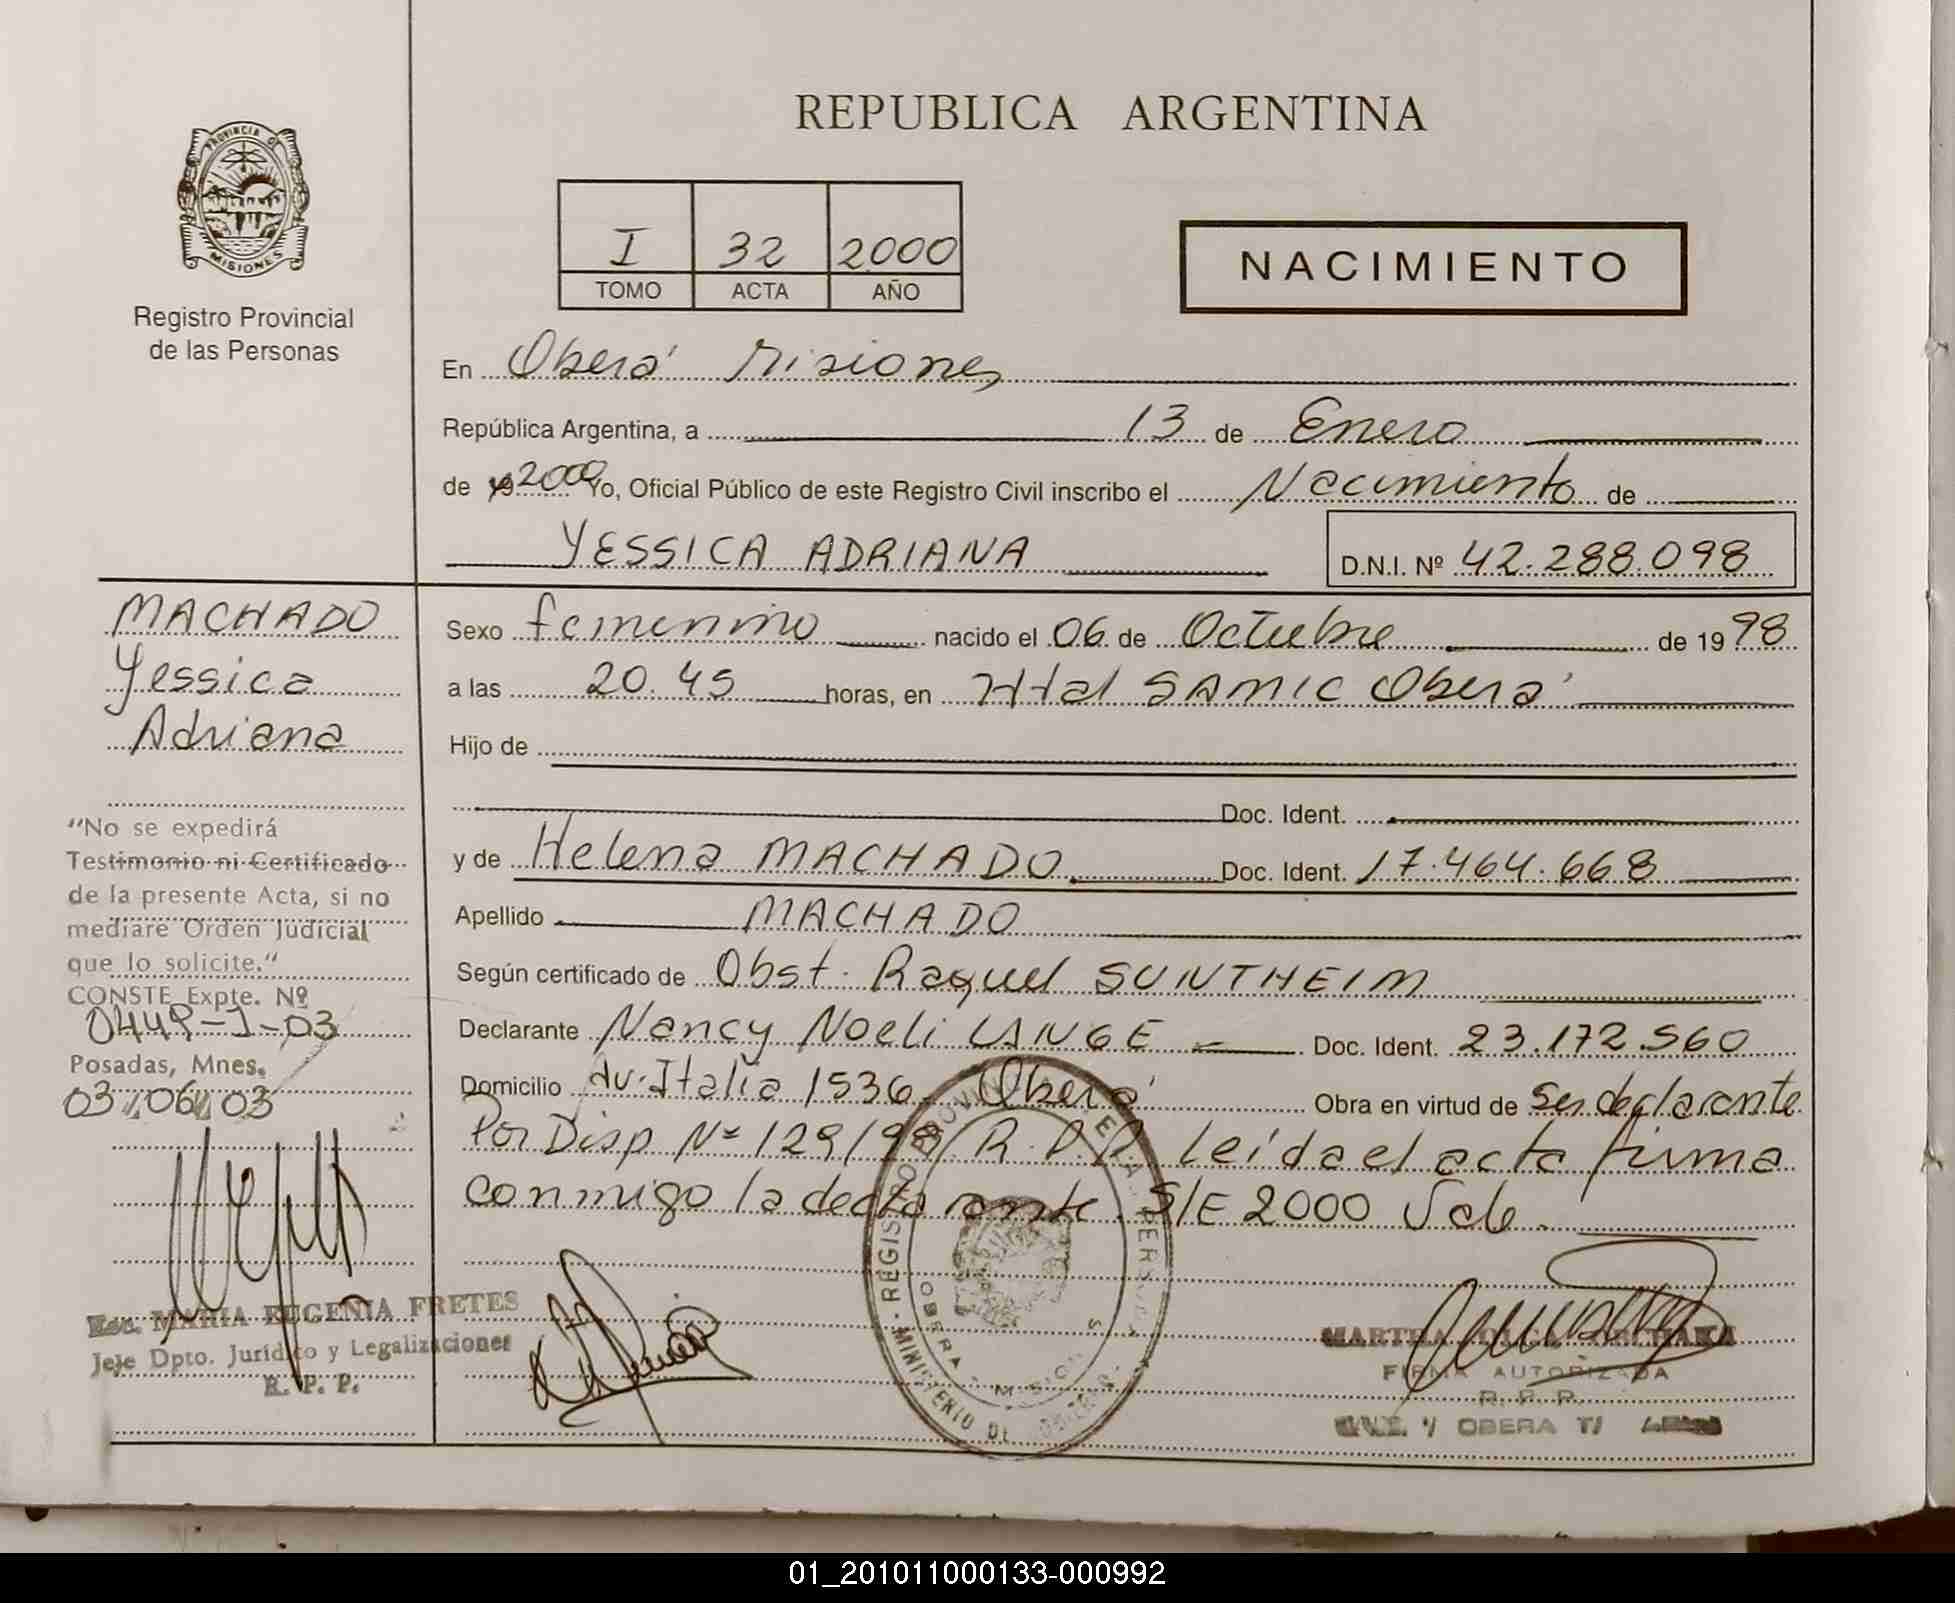 REPUBLICA ARGENTINA
PROVINCIA DE
MISIONES
Registro Provincial
de las Personas
I 32 2000
TOMO ACTA AÑO
NACIMIENTO
En Oberá Misiones
República Argentina, a 13 de Enero
de 19 2000 Yo, Oficial Público de este Registro Civil inscribo el Nacimiento de
YESSICA ADRIANA D.N.I. Nº 42.288.098
MACHADO
Yessica
Adriana
"No se expedirá
Testimonio ni Certificado
de la presente Acta, si no
mediare Orden Judicial
que lo solicite."
CONSTE Expte. Nº
Posadas, Mnes.
03/06/03
MARIA EUGENIA FRETES
Jefe Dpto. Jurídico y Legalizaciones
R. P. P.
Sexo femenino nacido el 06 de Octubre de 19 98
a las 20.45 horas, en Htal SAMIC Oberá
Hijo de
Doc. Ident.
y de Helena MACHADO Doc. Ident. 17.464.668
Apellido MACHADO
Según certificado de Obst. Raquel SUNTHEIM
Declarante Nancy Noeli LANGE Doc. Ident. 23.172.560
Domicilio Av. Italia 1536 Oberá Obra en virtud de Ser declarante
Por Disp Nº 129/98 R.P.P. Leída el acta firma
conmigo la declarante. S/E 2000 Vale.
MARTHA OLGA
FIRMA AUTORIZADA
R. P. P.
OBERA
01_201011000133-000992